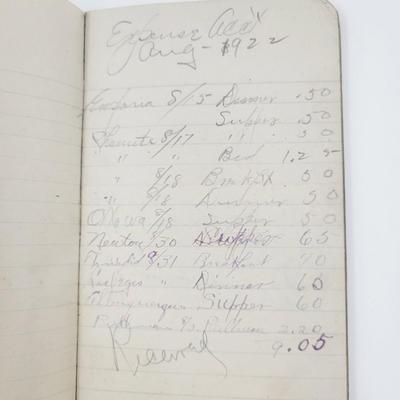 Expense Acc't
Aug - 1922
Emporia 8/15 Dinner .50
Supper .50
Chanute 8/17 " " 50
" " Bed 1.25
" 8/18 Brekfst 50
" 8/18 Dinner 50
Ottawa 8/18 Supper 50
Newton 8/30 65
Trinidad 8/31 Brekfast 70
Las Vegas " Dinner 60
Albuquerque Supper 60
Pullman 2.20
9.05
Received